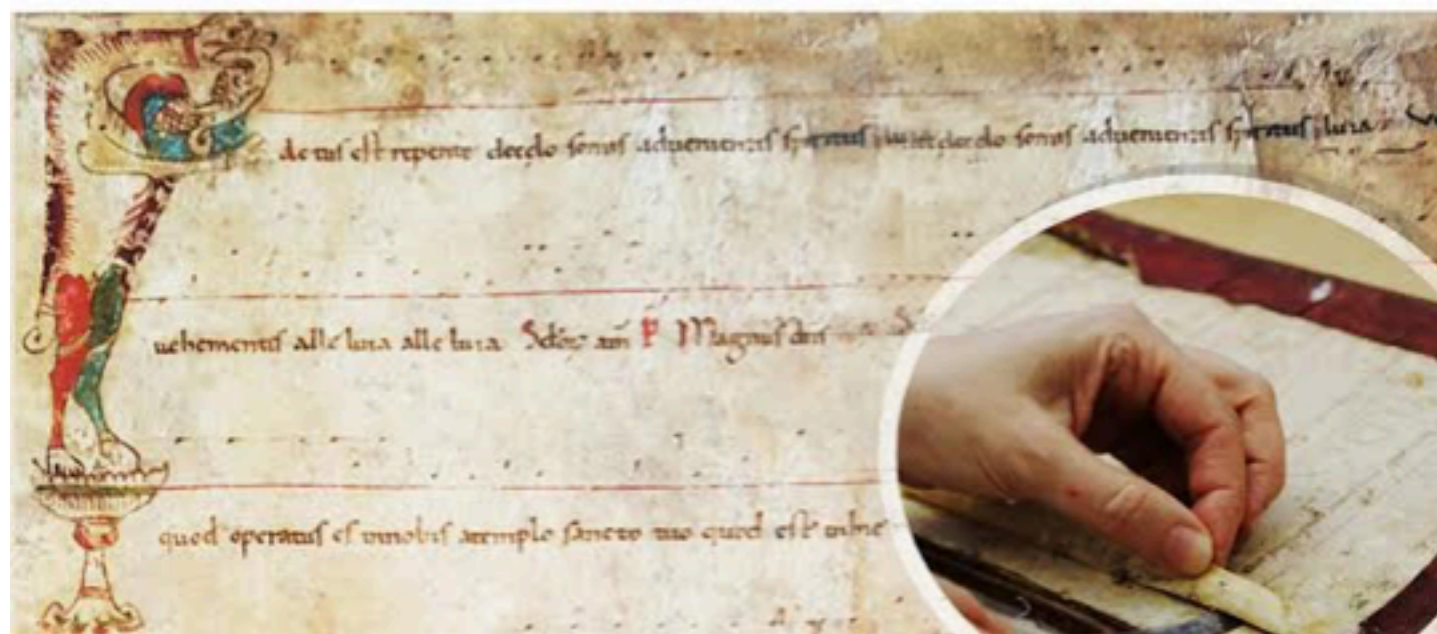 Factus est repente decelo sonus aduenientis spiritus decelo sonus aduenientis spiritus luia
uehementis alle luia alle luia P Magnus dns
quod operatus es innobis atemplo sancto tuo quod est